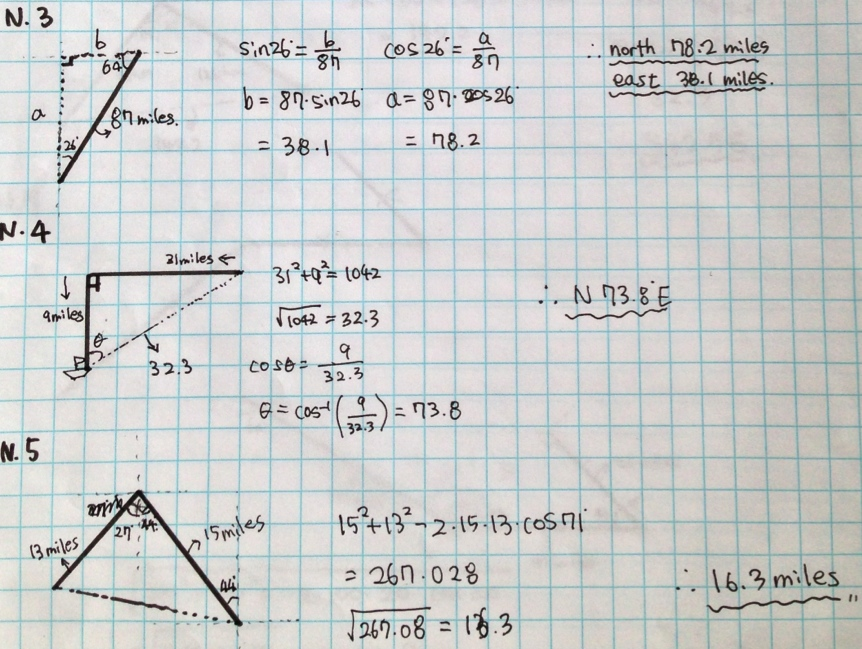 N.3
b
64°
a
87 miles.
26°
sin26° = b/87
b = 87·sin26
= 38.1
cos26° = a/87
a = 87·cos26°
= 78.2
∴ north 78.2 miles
east 38.1 miles.
N.4
31miles ←
↓
9miles
θ
32.3
31²+9² = 1042
√1042 = 32.3
cosθ = 9/32.3
θ = cos⁻¹(9/32.3) = 73.8
∴ N 73.8°E
N.5
27° 44°
13 miles
15 miles
44°
15²+13²-2·15·13·cos71°
= 267.028
√267.08 = 16.3
∴ 16.3 miles „